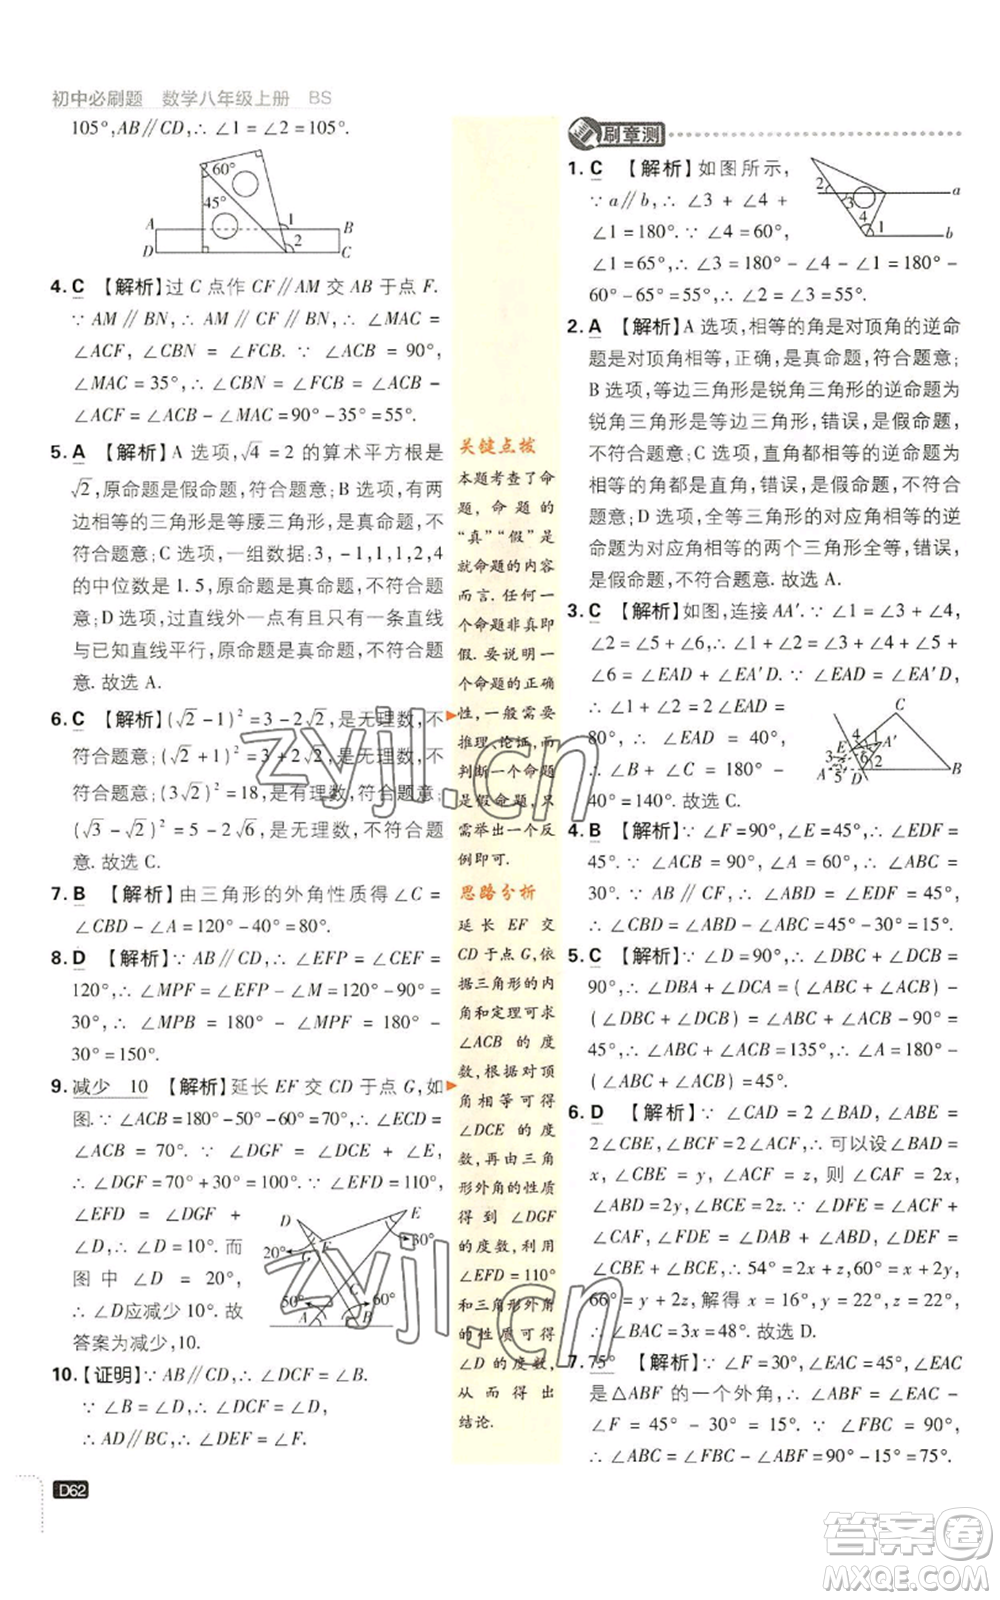 初中必刷题 数学八年级上册 BS
105°,AB∥CD,∴ ∠1 = ∠2 = 105°.
60°
45°
A
B
D
C
1
2
4. C 【解析】过 C 点作 CF∥AM 交 AB 于点 F.
∵ AM∥BN,∴ AM∥CF∥BN,∴ ∠MAC =
∠ACF, ∠CBN = ∠FCB. ∵ ∠ACB = 90°,
∠MAC = 35°,∴ ∠CBN = ∠FCB = ∠ACB −
∠ACF = ∠ACB − ∠MAC = 90° − 35° = 55°.
5. A 【解析】A 选项,√4 = 2 的算术平方根是
√2,原命题是假命题,符合题意;B 选项,有两
边相等的三角形是等腰三角形,是真命题,不
符合题意;C 选项,一组数据:3,−1,1,1,2,4
的中位数是 1.5,原命题是真命题,不符合题
意;D 选项,过直线外一点有且只有一条直线
与已知直线平行,原命题是真命题,不符合题
意. 故选 A.
6. C 【解析】(√2 − 1)² = 3 − 2√2,是无理数,不
符合题意;(√2 + 1)² = 3 + 2√2,是无理数,不
符合题意;(3√2)² = 18,是有理数,符合题意;
(√3 − √2)² = 5 − 2√6,是无理数,不符合题
意. 故选 C.
7. B 【解析】由三角形的外角性质得 ∠C =
∠CBD − ∠A = 120° − 40° = 80°.
8. D 【解析】∵ AB∥CD,∴ ∠EFP = ∠CEF =
120°,∴ ∠MPF = ∠EFP − ∠M = 120° − 90° =
30°,∴ ∠MPB = 180° − ∠MPF = 180° −
30° = 150°.
9. 减少 10 【解析】延长 EF 交 CD 于点 G,如
图. ∵ ∠ACB = 180° − 50° − 60° = 70°,∴ ∠ECD =
∠ACB = 70°. ∵ ∠DGF = ∠DCE + ∠E,
∴ ∠DGF = 70° + 30° = 100°. ∵ ∠EFD = 110°,
∠EFD = ∠DGF +
∠D,∴ ∠D = 10°. 而
图中 ∠D = 20°,
∴ ∠D应减少 10°. 故
答案为减少,10.
D
E
F
20°
30°
G
C
50°
60°
A
B
10. 【证明】∵ AB∥CD,∴ ∠DCF = ∠B.
∵ ∠B = ∠D,∴ ∠DCF = ∠D,
∴ AD∥BC,∴ ∠DEF = ∠F.
D62
关键点拨
本题考查了命
题, 命 题 的
“真”“假”是
就命题的内容
而言. 任何一
个命题非真即
假. 要说明一
个命题的正确
性,一般需要
推理、论证,而
判断一个命题
是假命题,只
需举出一个反
例即可.
思路分析
延长 EF 交
CD 于点 G,依
据三角形的内
角和定理可求
∠ACB 的 度
数,根据对顶
角相等可得
∠DCE 的 度
数,再由三角
形外角的性质
得到 ∠DGF
的度数,利用
∠EFD = 110°
和三角形外角
的性质可得
∠D 的度数,
从而得出
结论.
刷章测
1. C 【解析】如图所示,
∵ a∥b,∴ ∠3 + ∠4 +
∠1 = 180°. ∵ ∠4 = 60°,
∠3 = ∠2 = 65°,
∴ ∠1 = 180° − ∠4 − ∠1 = 180° −
60° − 65° = 55°,∴ ∠1 = 55°.
2
3
4
1
a
b
2. A 【解析】A 选项,相等的角是对顶角的逆命
题是对顶角相等,正确,是真命题,符合题意;
B 选项,等边三角形是锐角三角形的逆命题为
锐角三角形是等边三角形,错误,是假命题,
不符合题意;C 选项,直角都相等的逆命题为
相等的角都是直角,错误,是假命题,不符合
题意;D 选项,全等三角形的对应角相等的逆
命题为对应角相等的两个三角形全等,错误,
是假命题,不符合题意. 故选 A.
3. C 【解析】如图,连接 AA′. ∵ ∠1 = ∠3 + ∠4,
∠2 = ∠5 + ∠6,∴ ∠1 + ∠2 = ∠3 + ∠4 + ∠5 +
∠6 = ∠EAD + ∠EA′D. ∵ ∠EAD = ∠EA′D,
∴ ∠1 + ∠2 = 2 ∠EAD =
80°,∴ ∠EAD = 40°,
∴ ∠B + ∠C = 180° −
40° = 140°. 故选 C.
C
E
A′
A
D
B
4
1
3
5
6
2
4. B 【解析】∵ ∠F = 90°,∠E = 45°,∴ ∠EDF =
45°. ∵ ∠ACB = 90°, ∠A = 60°,∴ ∠ABC =
30°. ∵ AB∥CF,∴ ∠ABD = ∠EDF = 45°,
∴ ∠DBC = ∠ABD − ∠ABC = 45° − 30° = 15°.
5. C 【解析】∵ ∠D = 90°,∴ ∠DBC + ∠DCB =
90°,∴ ∠DBA + ∠DCA = ( ∠ABC + ∠ACB) −
( ∠DBC + ∠DCB) = ∠ABC + ∠ACB − 90° =
45°,∴ ∠ABC + ∠ACB = 135°,∴ ∠A = 180° −
( ∠ABC + ∠ACB) = 45°.
6. D 【解析】∵ ∠CAD = 2 ∠BAD, ∠ABE =
2∠CBE,∠BCF = 2∠ACF,∴ 可以设 ∠BAD =
x,∠CBE = y,∠ACF = z, 则 ∠CAF = 2x,
∠ABD = 2y,∠BCE = 2z. ∵ ∠DFE = ∠CAF +
∠ACF,∠FDE = ∠BAD + ∠ABD, ∠DEF =
∠CBE + ∠BCE,∴ 54° = 2x + z,60° = x + 2y,
66° = y + 2z,解得 x = 16°,y = 22°,z = 22°,
∴ ∠BAC = 3x = 48°. 故选 D.
7. 75° 【解析】∵ ∠F = 30°,∠EAC = 45°,∠EAC
是△ABF 的一个外角,∴ ∠ABF = ∠EAC −
∠F = 45° − 30° = 15°. ∵ ∠FBC = 90°,
∴ ∠ABC = ∠FBC − ∠ABF = 90° − 15° = 75°.
zyjl.cn
zyjl.cn
答案卷
MXQE.COM